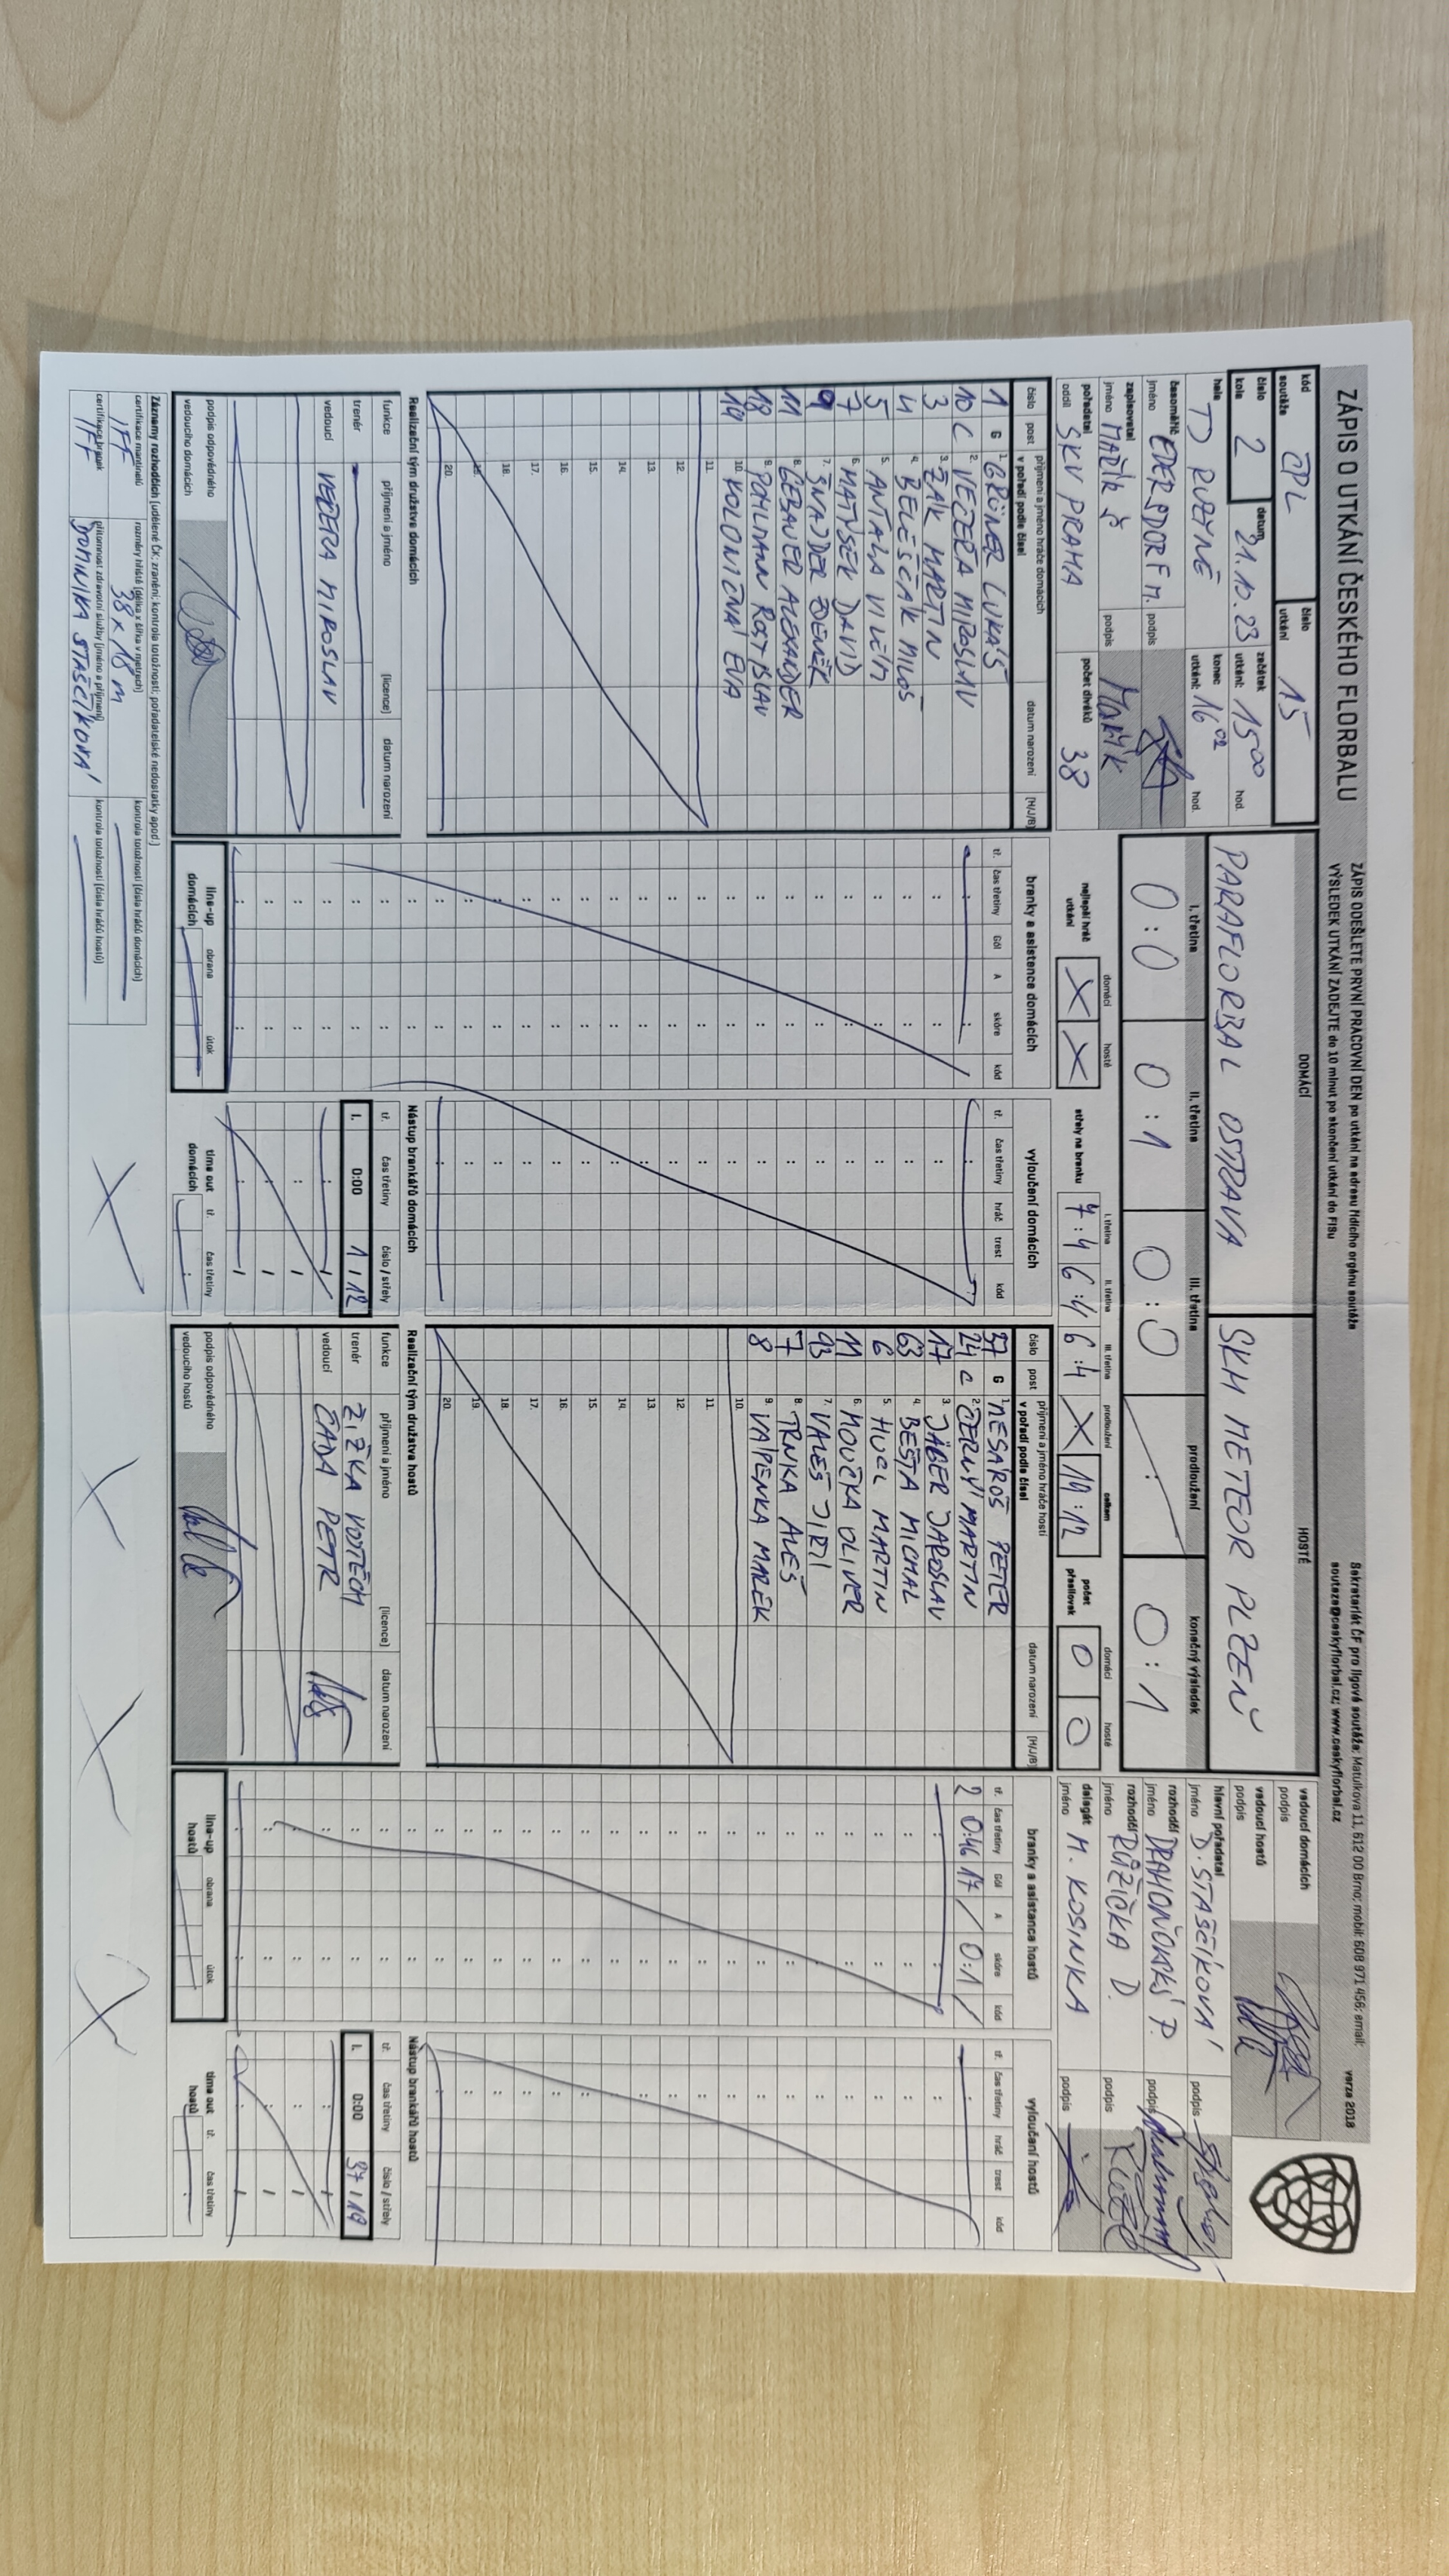 ZÁPIS O UTKÁNÍ ČESKÉHO FLORBALU
ZÁPIS ODEŠLETE PRVNÍ PRACOVNÍ DEN po utkání na adresu řídícího orgánu soutěže
VÝSLEDEK UTKÁNÍ ZADEJTE do 10 minut po skončení utkání do FISu
Sekretariát ČF pro ligové soutěže: Matulkova 11, 612 00 Brno; mobil: 608 971 456; email:
souteze@ceskyflorbal.cz; www.ceskyflorbal.cz
verze 2018
kód soutěže ČPL
číslo utkání 15
číslo kola 2
datum 21.10.23
začátek utkání: 15 00 hod.
hala TJ RUZYNĚ
konec utkání: 16 02 hod.
časoměřič jméno EDERSDORF M. podpis
zapisovatel jméno MAŘÍK podpis Mařík
pořadatel oddíl SKV PRAHA
počet diváků 38
DOMÁCÍ
PARAFLORBAL OSTRAVA
HOSTÉ
SKH METEOR PLZEŇ
I. třetina II. třetina III. třetina prodloužení konečný výsledek
0:0 0:1 0:0 : 0:1
nejlepší hráč utkání domácí X hosté X
střely na branku I. třetina 7:4 II. třetina 6:4 III. třetina 6:4 prodloužení X celkem 19:12
počet přesilovek domácí 0 hosté 0
vedoucí domácích podpis
vedoucí hostů podpis
hlavní pořadatel jméno D. STAŠČÍKOVÁ podpis
rozhodčí jméno DRAHOŇOVSKÝ P. podpis
rozhodčí jméno RŮŽIČKA D. podpis
delegát jméno M. KOSINKA podpis
číslo post příjmení a jméno hráče domácích v pořadí podle čísel datum narození (H/J/B)
1 G 1. GRÜNER LUKÁŠ
10 C 2. VEČEŘA MIROSLAV
3 3. ŽÁK MARTIN
4 4. BELEŠČÁK MILOŠ
5 5. ANTALA VILÉM
7 6. MATÝSEK DAVID
9 7. ŠNAJDER ZDENĚK
11 8. GEBAUER ALEXANDER
18 9. POHLMANN ROSTISLAV
19 10. KOLONIČNÁ EVA
11.
12.
13.
14.
15.
16.
17.
18.
19.
20.
branky a asistence domácích
tř. čas třetiny Gól A skóre kód
vyloučení domácích
tř. čas třetiny hráč trest kód
číslo post příjmení a jméno hráče hostí v pořadí podle čísel datum narození (H/J/B)
37 G 1. MESÁROŠ PETER
24 C 2. ČERNÝ MARTIN
17 3. JÄGER JAROSLAV
63 4. BEŠTA MICHAL
6 5. HUCL MARTIN
11 6. MOUČKA OLIVER
93 7. VALEŠ JIŘÍ
7 8. TRNKA ALEŠ
8 9. VÁPENKA MAREK
10.
11.
12.
13.
14.
15.
16.
17.
18.
19.
20.
branky a asistence hostů
tř. čas třetiny Gól A skóre kód
2 0:46 17 / 0:1 /
vyloučení hostů
tř. čas třetiny hráč trest kód
Realizační tým družstva domácích
funkce příjmení a jméno (licence) datum narození
trenér
vedoucí VEČEŘA MIROSLAV
podpis odpovědného vedoucího domácích
line-up domácích obrana útok
Nástup brankářů domácích
tř. čas třetiny číslo / střely
I. 0:00 1 / 12
time out domácích tř. čas třetiny
Realizační tým družstva hostů
funkce příjmení a jméno (licence) datum narození
trenér ŽIŽKA VOJTĚCH
vedoucí ČADA PETR
podpis odpovědného vedoucího hostů
line-up hostů obrana útok
Nástup brankářů hostů
tř. čas třetiny číslo / střely
I. 0:00 37 / 19
time out hostů tř. čas třetiny
Záznamy rozhodčích (udělené ČK; zranění; kontrola totožnosti; pořadatelské nedostatky apod.)
certifikace mantinelů IFF
rozměry hřiště (délka x šířka v metrech) 38 x 18 m
kontrola totožnosti (čísla hráčů domácích)
certifikace branek IFF
přítomnost zdravotní služby (jméno a příjmení) DOMINIKA STAŠČÍKOVÁ
kontrola totožnosti (čísla hráčů hostů)